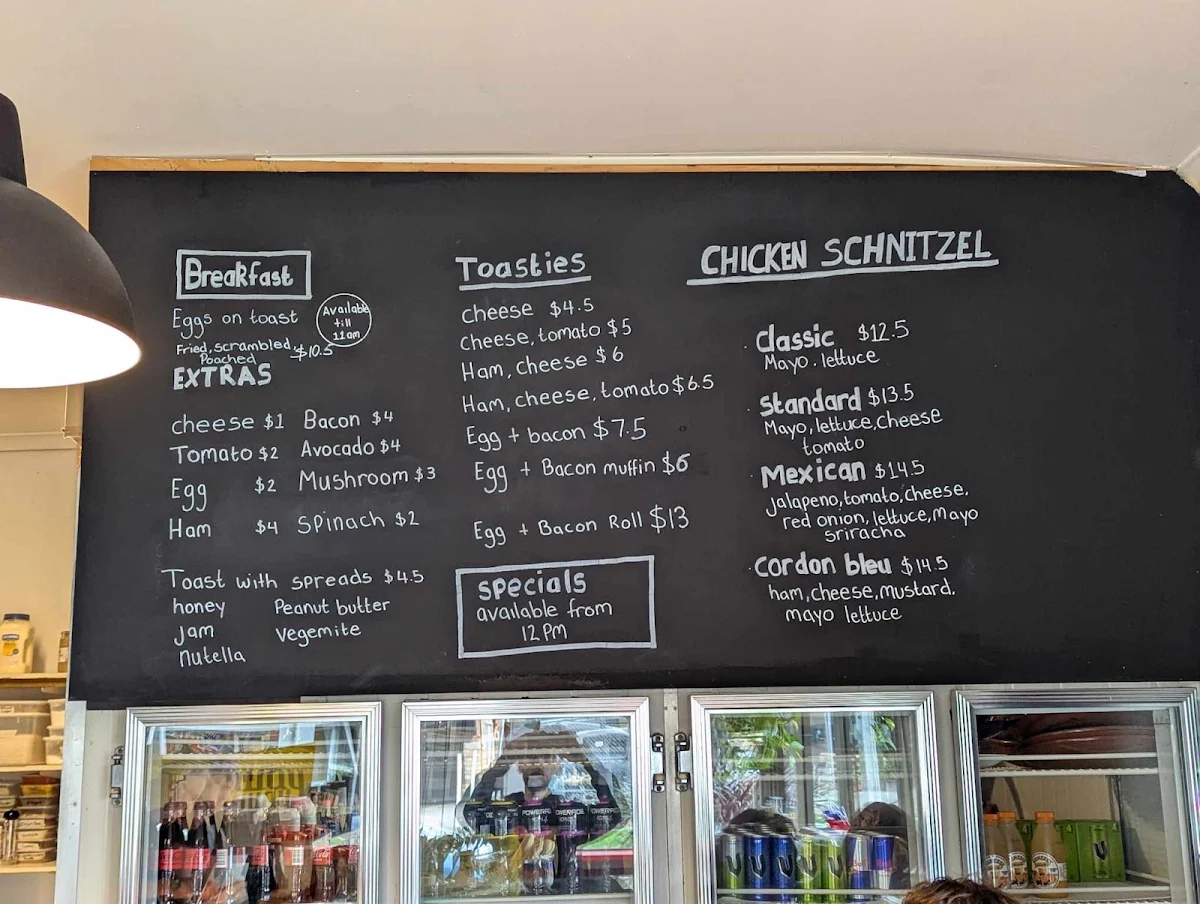 Breakfast
Eggs on toast
Available
till
11am
Fried, scrambled,
Poached $10.5
EXTRAS
cheese $1 Bacon $4
Tomato $2 Avocado $4
Egg $2 Mushroom $3
Ham $4 Spinach $2
Toast with spreads $4.5
honey Peanut butter
Jam Vegemite
nutella
Toasties
cheese $4.5
cheese, tomato $5
Ham, cheese $6
Ham, cheese, tomato $6.5
Egg + bacon $7.5
Egg + Bacon muffin $6
Egg + Bacon Roll $13
specials
available from
12 PM
CHICKEN SCHNITZEL
. Classic $12.5
Mayo . lettuce
. Standard $13.5
Mayo, lettuce, cheese
tomato
. Mexican $14.5
jalapeno, tomato, cheese,
red onion, lettuce, mayo
sriracha
. cordon bleu $14.5
ham, cheese, mustard,
mayo lettuce
POWERADE